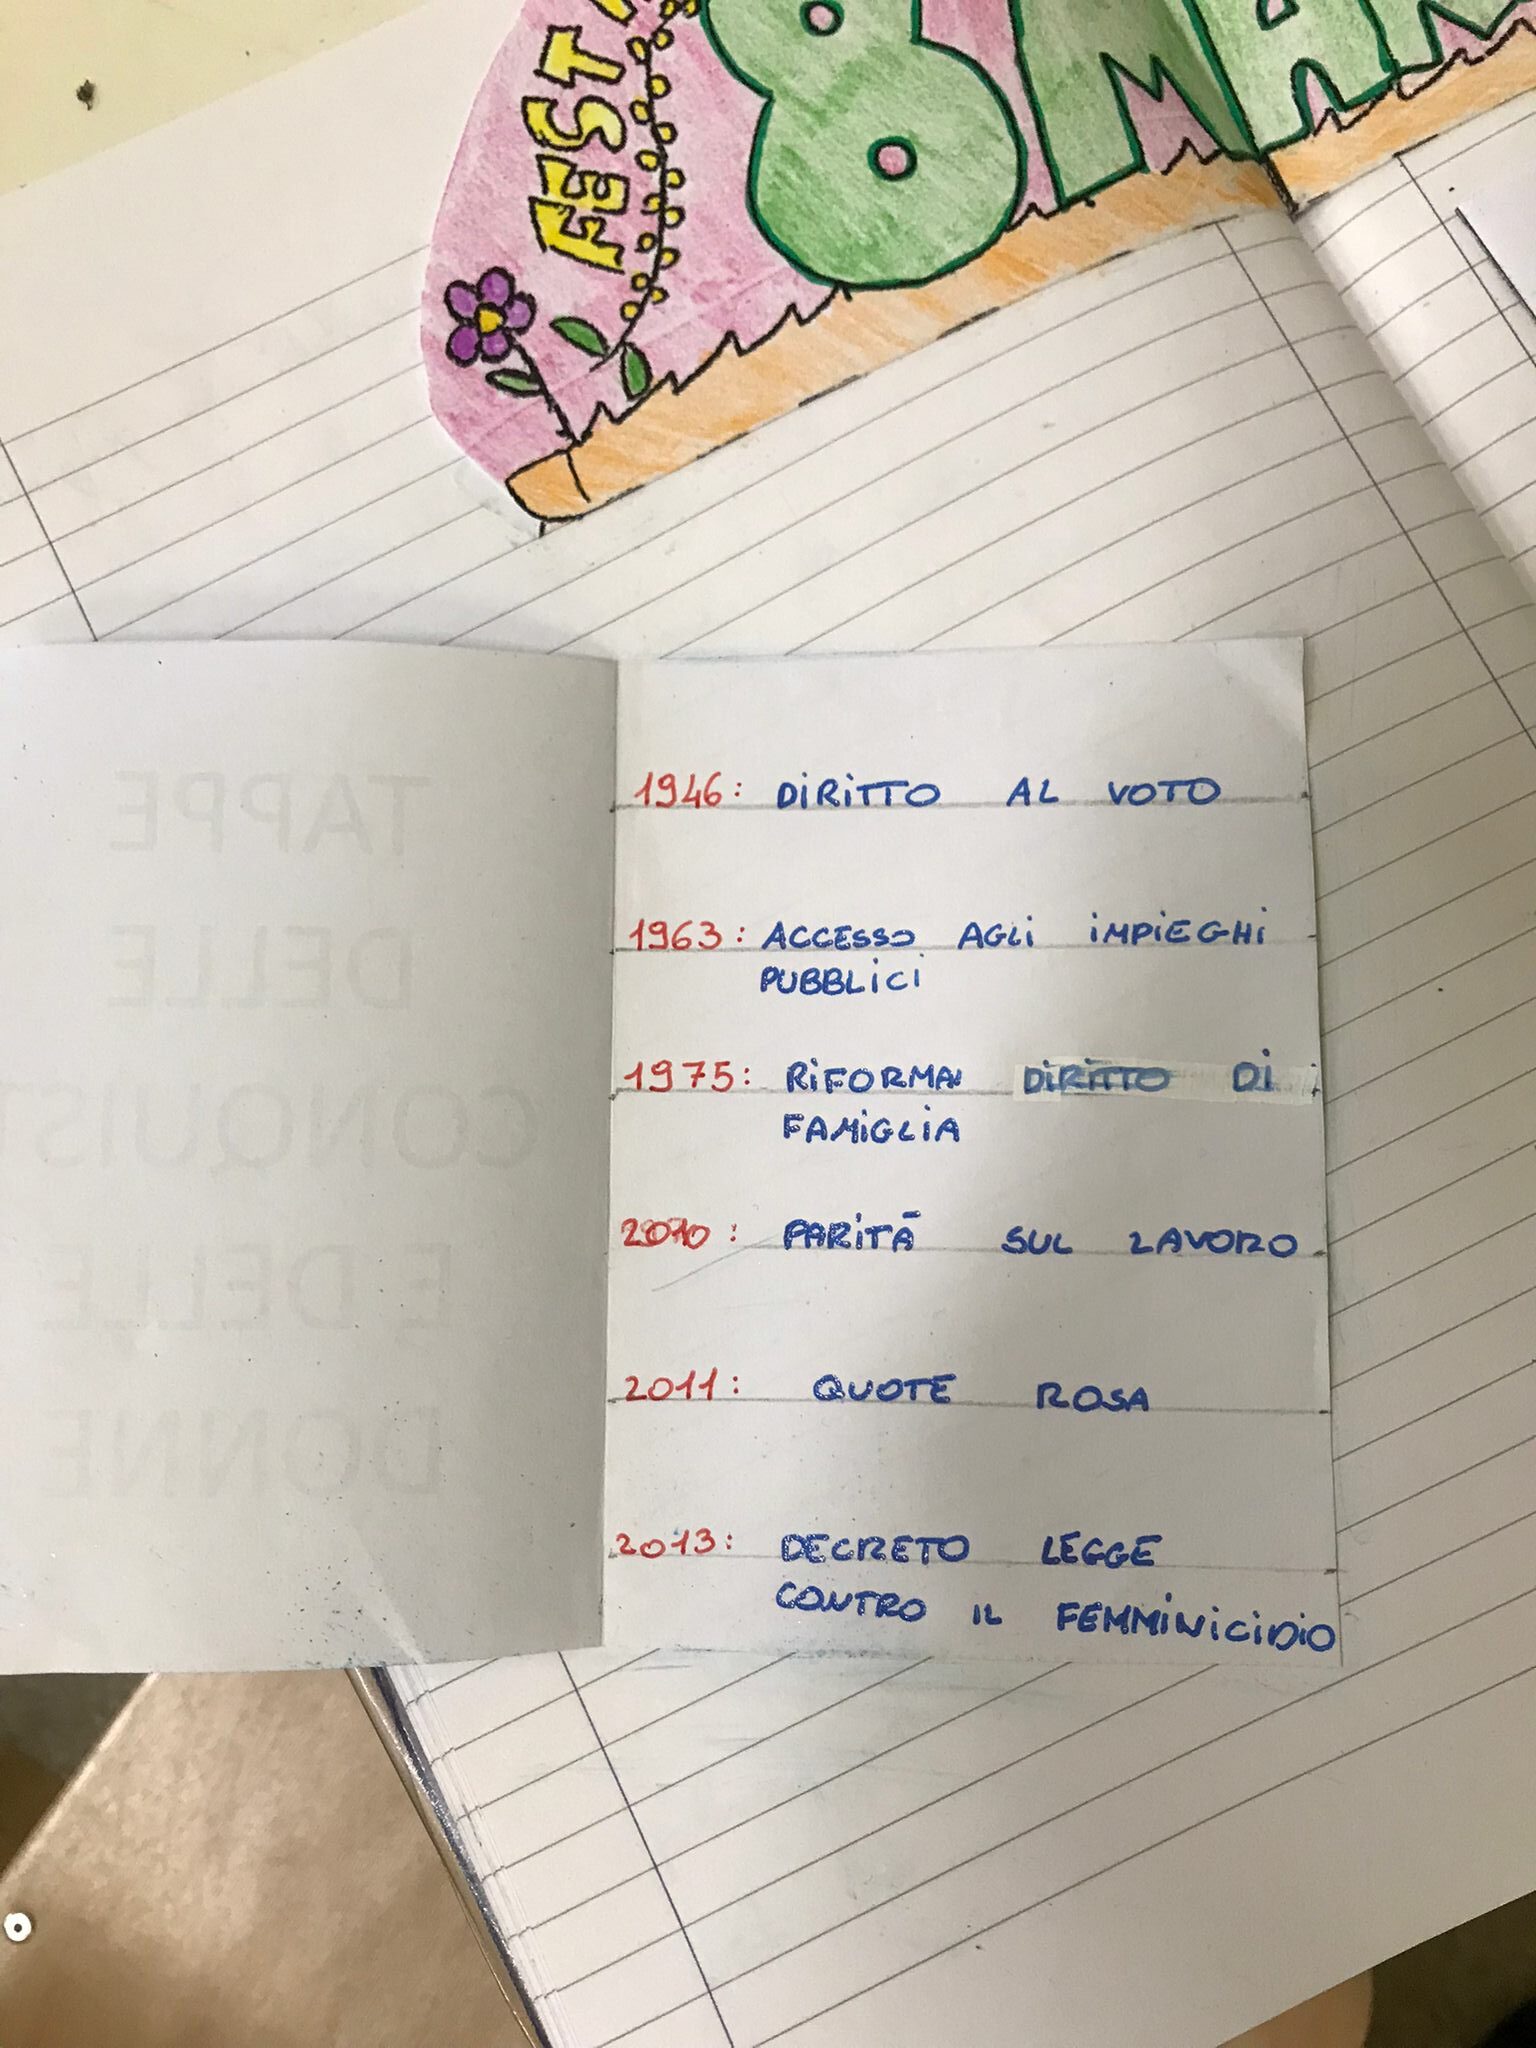 FEST
8 MAR
1946: DIRITTO AL VOTO
1963: ACCESSO AGLI IMPIEGHI
PUBBLICI
1975: RIFORMA DIRITTO DI
FAMIGLIA
2010: PARITÀ SUL LAVORO
2011: QUOTE ROSA
2013: DECRETO LEGGE
CONTRO IL FEMMINICIDIO
TAPPE
DELLE
CONQUIST
E DELLE
DONNE